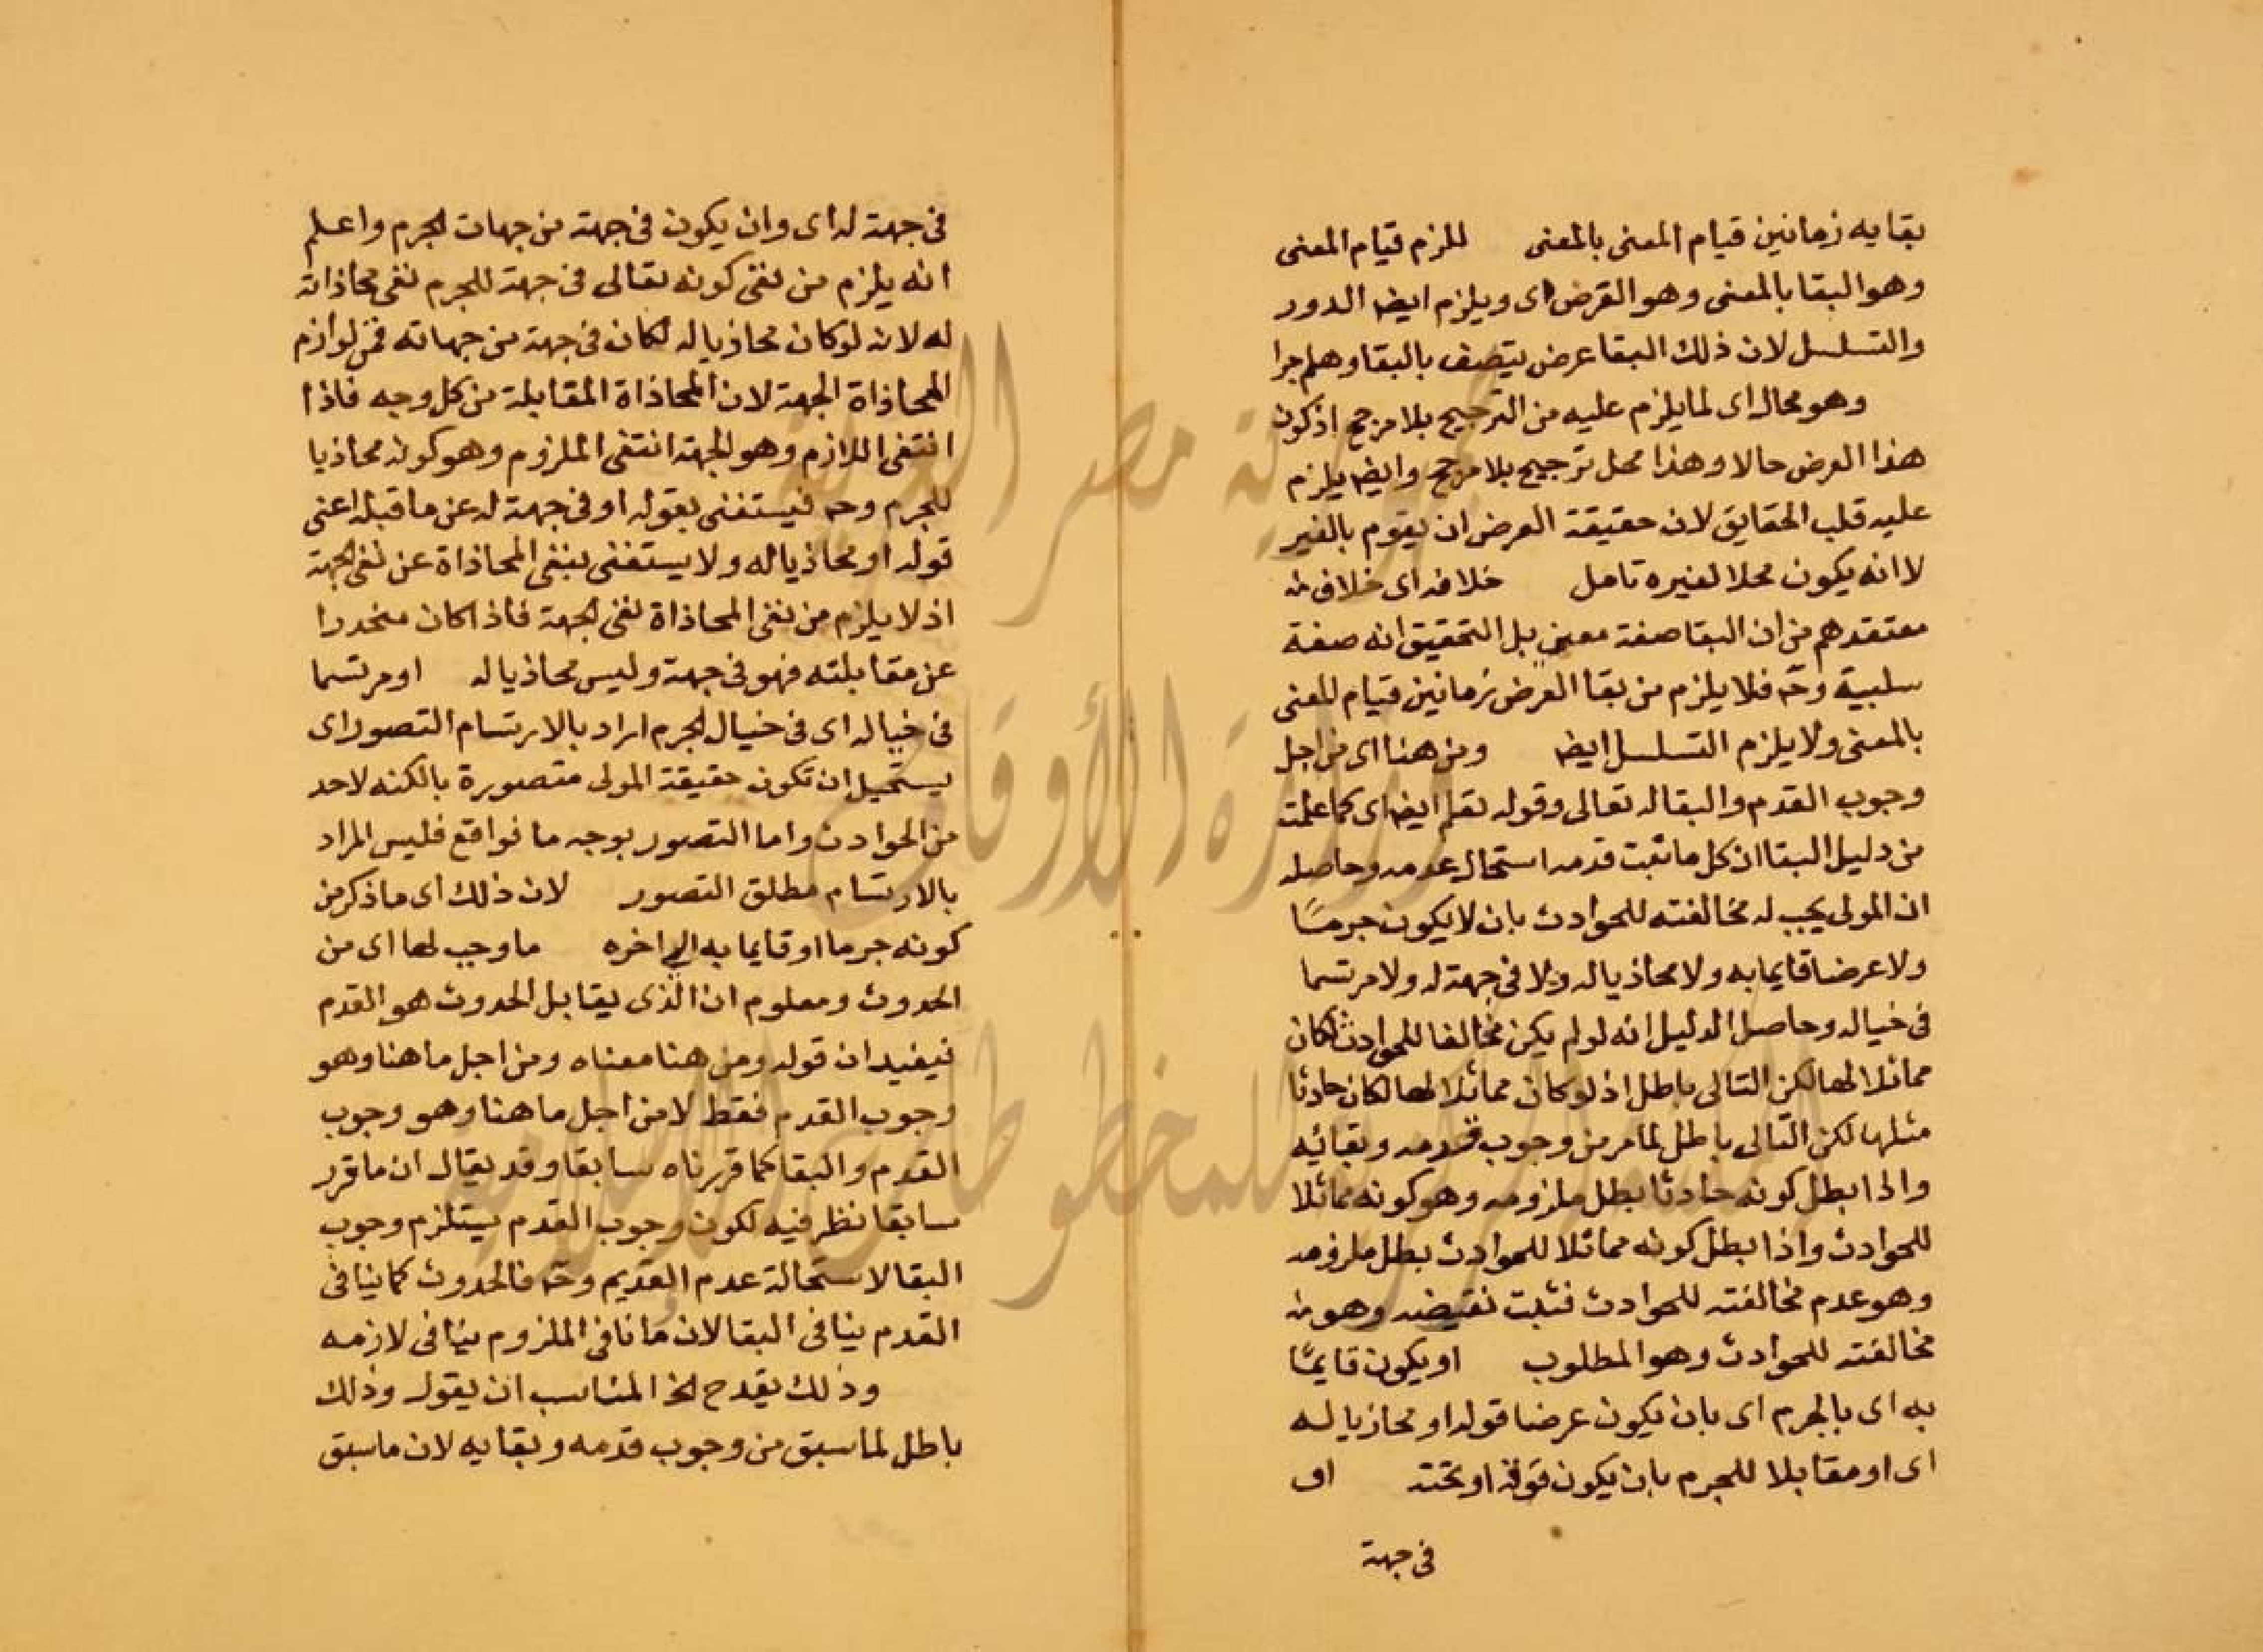 بقايه زمانين قيام المعنى بالمعنى للزم قيام المعنى
وهو البقا بالمعنى وهو العرض اى ويلزم ايضا الدور
والتسلسل لان ذلك البقا عرض يتصف بالبقا وهلم جرا
وهو محال اى لما يلزم عليه من الترجيح بلا مرجح اذ كون
هذا العرض حالا وهذا محل ترجيح بلا مرجح وايضا يلزم
عليه قلب الحقايق لان حقيقة العرض ان يقوم بالغير
لا انه يكون محلا لغيره تامل خلافه اى خلاف
معتقدهم من ان البقا صفة معنى بل التحقيق انه صفة
سلبية وح فلا يلزم من بقا العرض زمانين قيام المعنى
بالمعنى ولا يلزم التسلسل ايضا ومن هنا اى من اجل
وجوب القدم والبقا له تعالى وقوله تعلم ايضا اى كما علمت
من دليل البقا ان كل ما ثبت قدمه استحال عدمه وحاصله
ان المولى يجب له مخالفته للحوادث بان لا يكون جرما
ولا عرضا قايما به ولا محاذيا له ولا فى جهة له ولا مرتسما
فى خياله وحاصل الدليل انه لو لم يكن مخالفا للحوادث لكان
مماثلا لها لكن التالى باطل اذ لو كان مماثلا لها لكان حادثا
مثلها لكن التالى باطل لما مر من وجوب قدمه وبقائه
واذا بطل كونه حادثا بطل ملزومه وهو كونه مماثلا
للحوادث واذا بطل كونه مماثلا للحوادث بطل ملزومه
وهو عدم مخالفته للحوادث فثبت نقيضه وهو
مخالفته للحوادث وهو المطلوب او يكون قايما
به اى بالجرم اى بان يكون عرضا قوله او محاذيا له
اى او مقابلا للجرم بان يكون فوقه او تحته او
فى جهة
فى جهة له اى وان يكون فى جهة من جهات الجرم واعلم
انه يلزم من نفى كونه تعالى فى جهة للجرم نفى محاذاته
له لانه لو كان محاذيا له لكان فى جهة من جهاته فمن لوازم
المحاذاة الجهة لان المحاذاة المقابلة من كل وجه فاذا
انتفى اللازم وهو الجهة انتفى الملزوم وهو كونه محاذيا
للجرم وح فيستغنى بقوله او فى جهة له عن ما قبله اعنى
قوله او محاذيا له ولا يستغنى بنفى المحاذاة عن نفى الجهة
اذ لا يلزم من نفى المحاذاة نفى الجهة فاذا كان منحدرا
عن مقابلته فهو فى جهة وليس محاذيا له او مرتسما
فى خياله اى فى خيال الجرم اراد بالارتسام التصور اى
يستحيل ان تكون حقيقة المولى متصورة بالكنه لاحد
من الحوادث واما التصور بوجه ما فواقع فليس المراد
بالارتسام مطلق التصور لان ذلك اى ما ذكر من
كونه جرما او قايما به الى اخره ما وجب لها اى من
الحدوث ومعلوم ان الذى يقابل الحدوث هو القدم
فيفيد ان قوله ومن هنا معناه ومن اجل ما هنا وهو
وجوب القدم فقط لا من اجل ما هنا وهو وجوب
القدم والبقا كما قررناه سابقا وقد يقال ان ما قرر
سابقا نظر فيه لكون وجوب القدم يستلزم وجوب
البقا لاستحالة عدم القديم وح فالحدوث كما ينافى
القدم ينافى البقا لان ما نافى الملزوم ينافى لازمه
وذلك يقدح الخ المناسب ان يقول وذلك
باطل لما سبق من وجوب قدمه وبقايه لان ما سبق